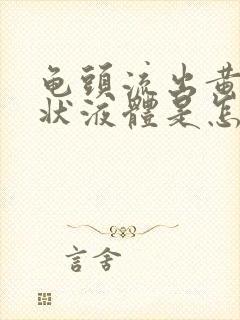 龟頭流出黄
状液體是怎
言舍